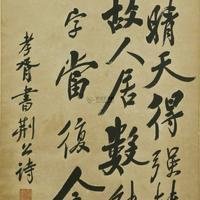 晴天得強
故人居數
字當復
孝胥書荊公詩